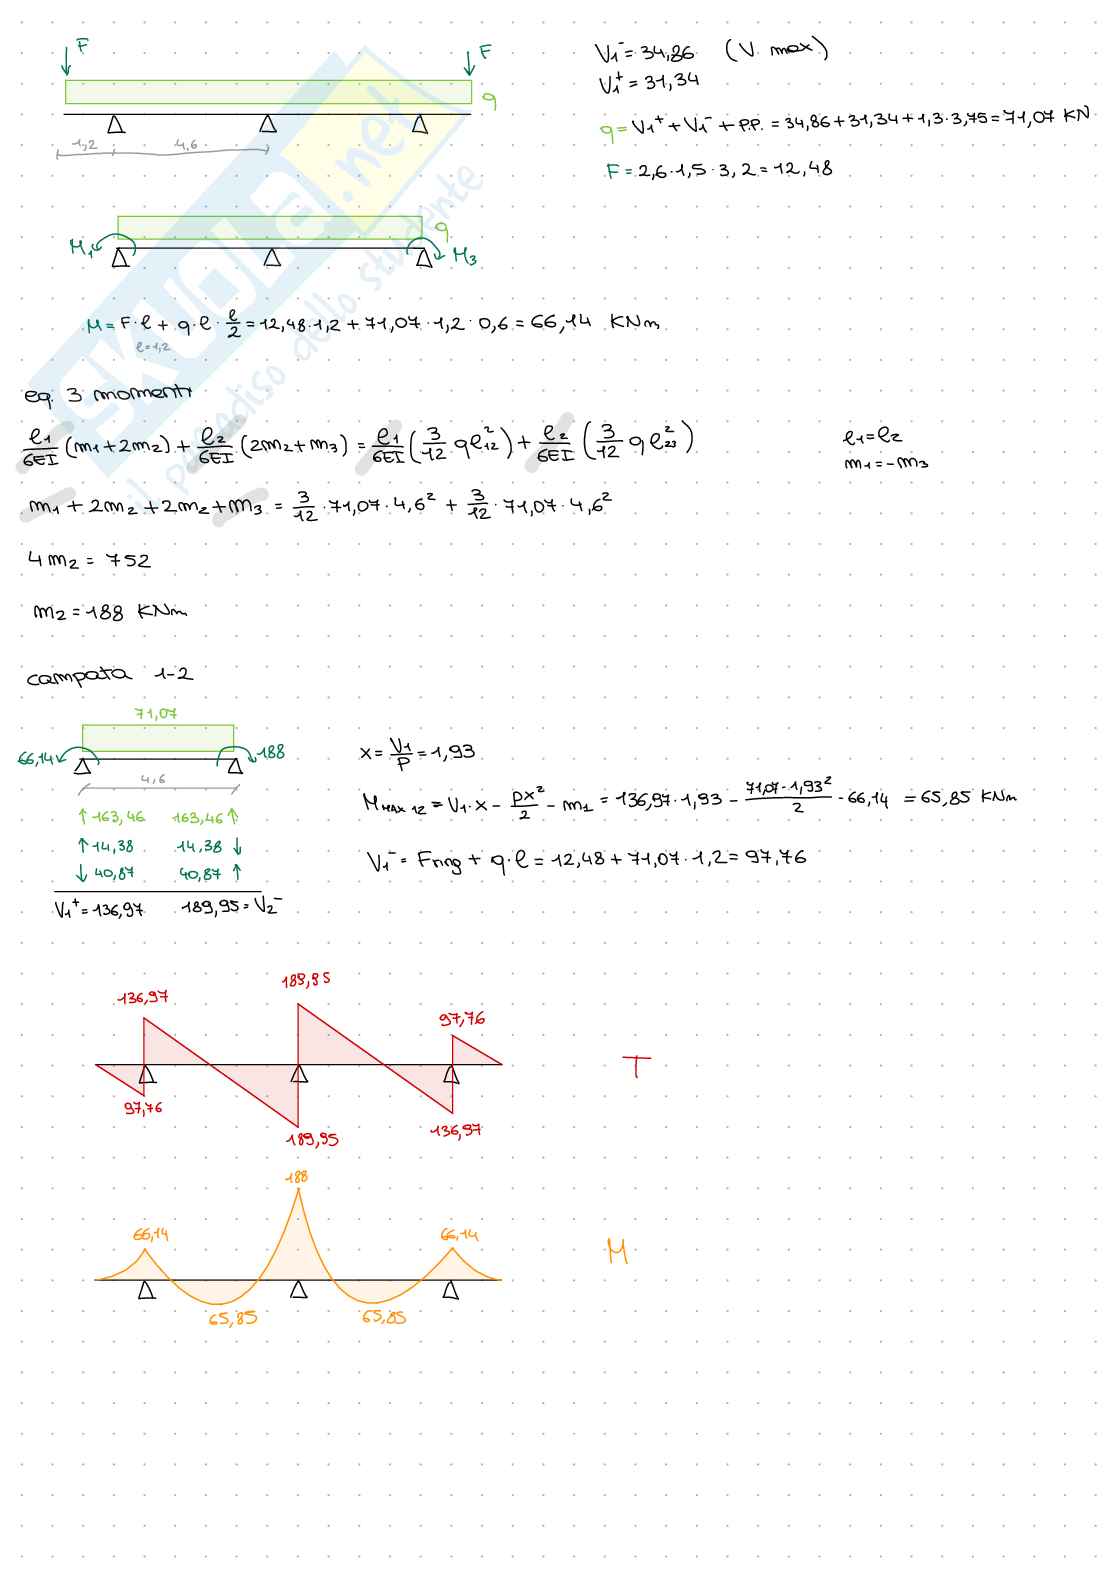 F F
q
1,2 4,6
V1⁻ = 34,86 (V max)
V1⁺ = 31,34
q = V1⁺ + V1⁻ + P.P. = 34,86 + 31,34 + 1,3 · 3,75 = 71,07 KN
F = 2,6 · 1,5 · 3,2 = 12,48
M1 q M3
M = F · l + q · l · l/2 = 12,48 · 1,2 + 71,07 · 1,2 · 0,6 = 66,14 KNm
l = 1,2
eq. 3 momenti
l1/6EI (m1 + 2m2) + l2/6EI (2m2 + m3) = l1/6EI (3/12 q l12²) + l2/6EI (3/12 q l23²)
l1 = l2
m1 = -m3
m1 + 2m2 + 2m2 + m3 = 3/12 · 71,07 · 4,6² + 3/12 · 71,07 · 4,6²
4m2 = 752
m2 = 188 KNm
campata 1-2
71,07
66,14 188
4,6
↑ 163,46 163,46 ↑
↑ 14,38 14,38 ↓
↓ 40,87 40,87 ↑
V1⁺ = 136,97 189,95 = V2⁻
x = V1/P = 1,93
M MAX 12 = V1 · x - px²/2 - m1 = 136,97 · 1,93 - 71,07 · 1,93²/2 - 66,14 = 65,85 KNm
V1⁻ = Fring + q · l = 12,48 + 71,07 · 1,2 = 97,76
136,97 189,95 97,76
T
97,76 189,95 136,97
188
66,14 66,14
M
65,85 65,85
SKUOLA.net
il paradiso dello studente